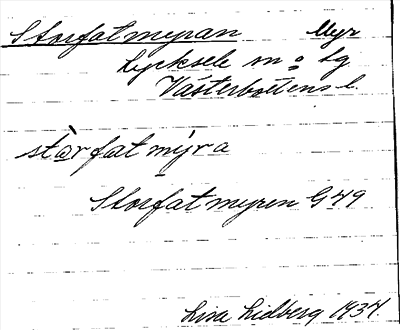 Storfatmyran Myr
Lycksele sn o lg
Västerbottens l.
stàrfatmýra
Storfatmyren G 49
Lisa Lidberg 1937.